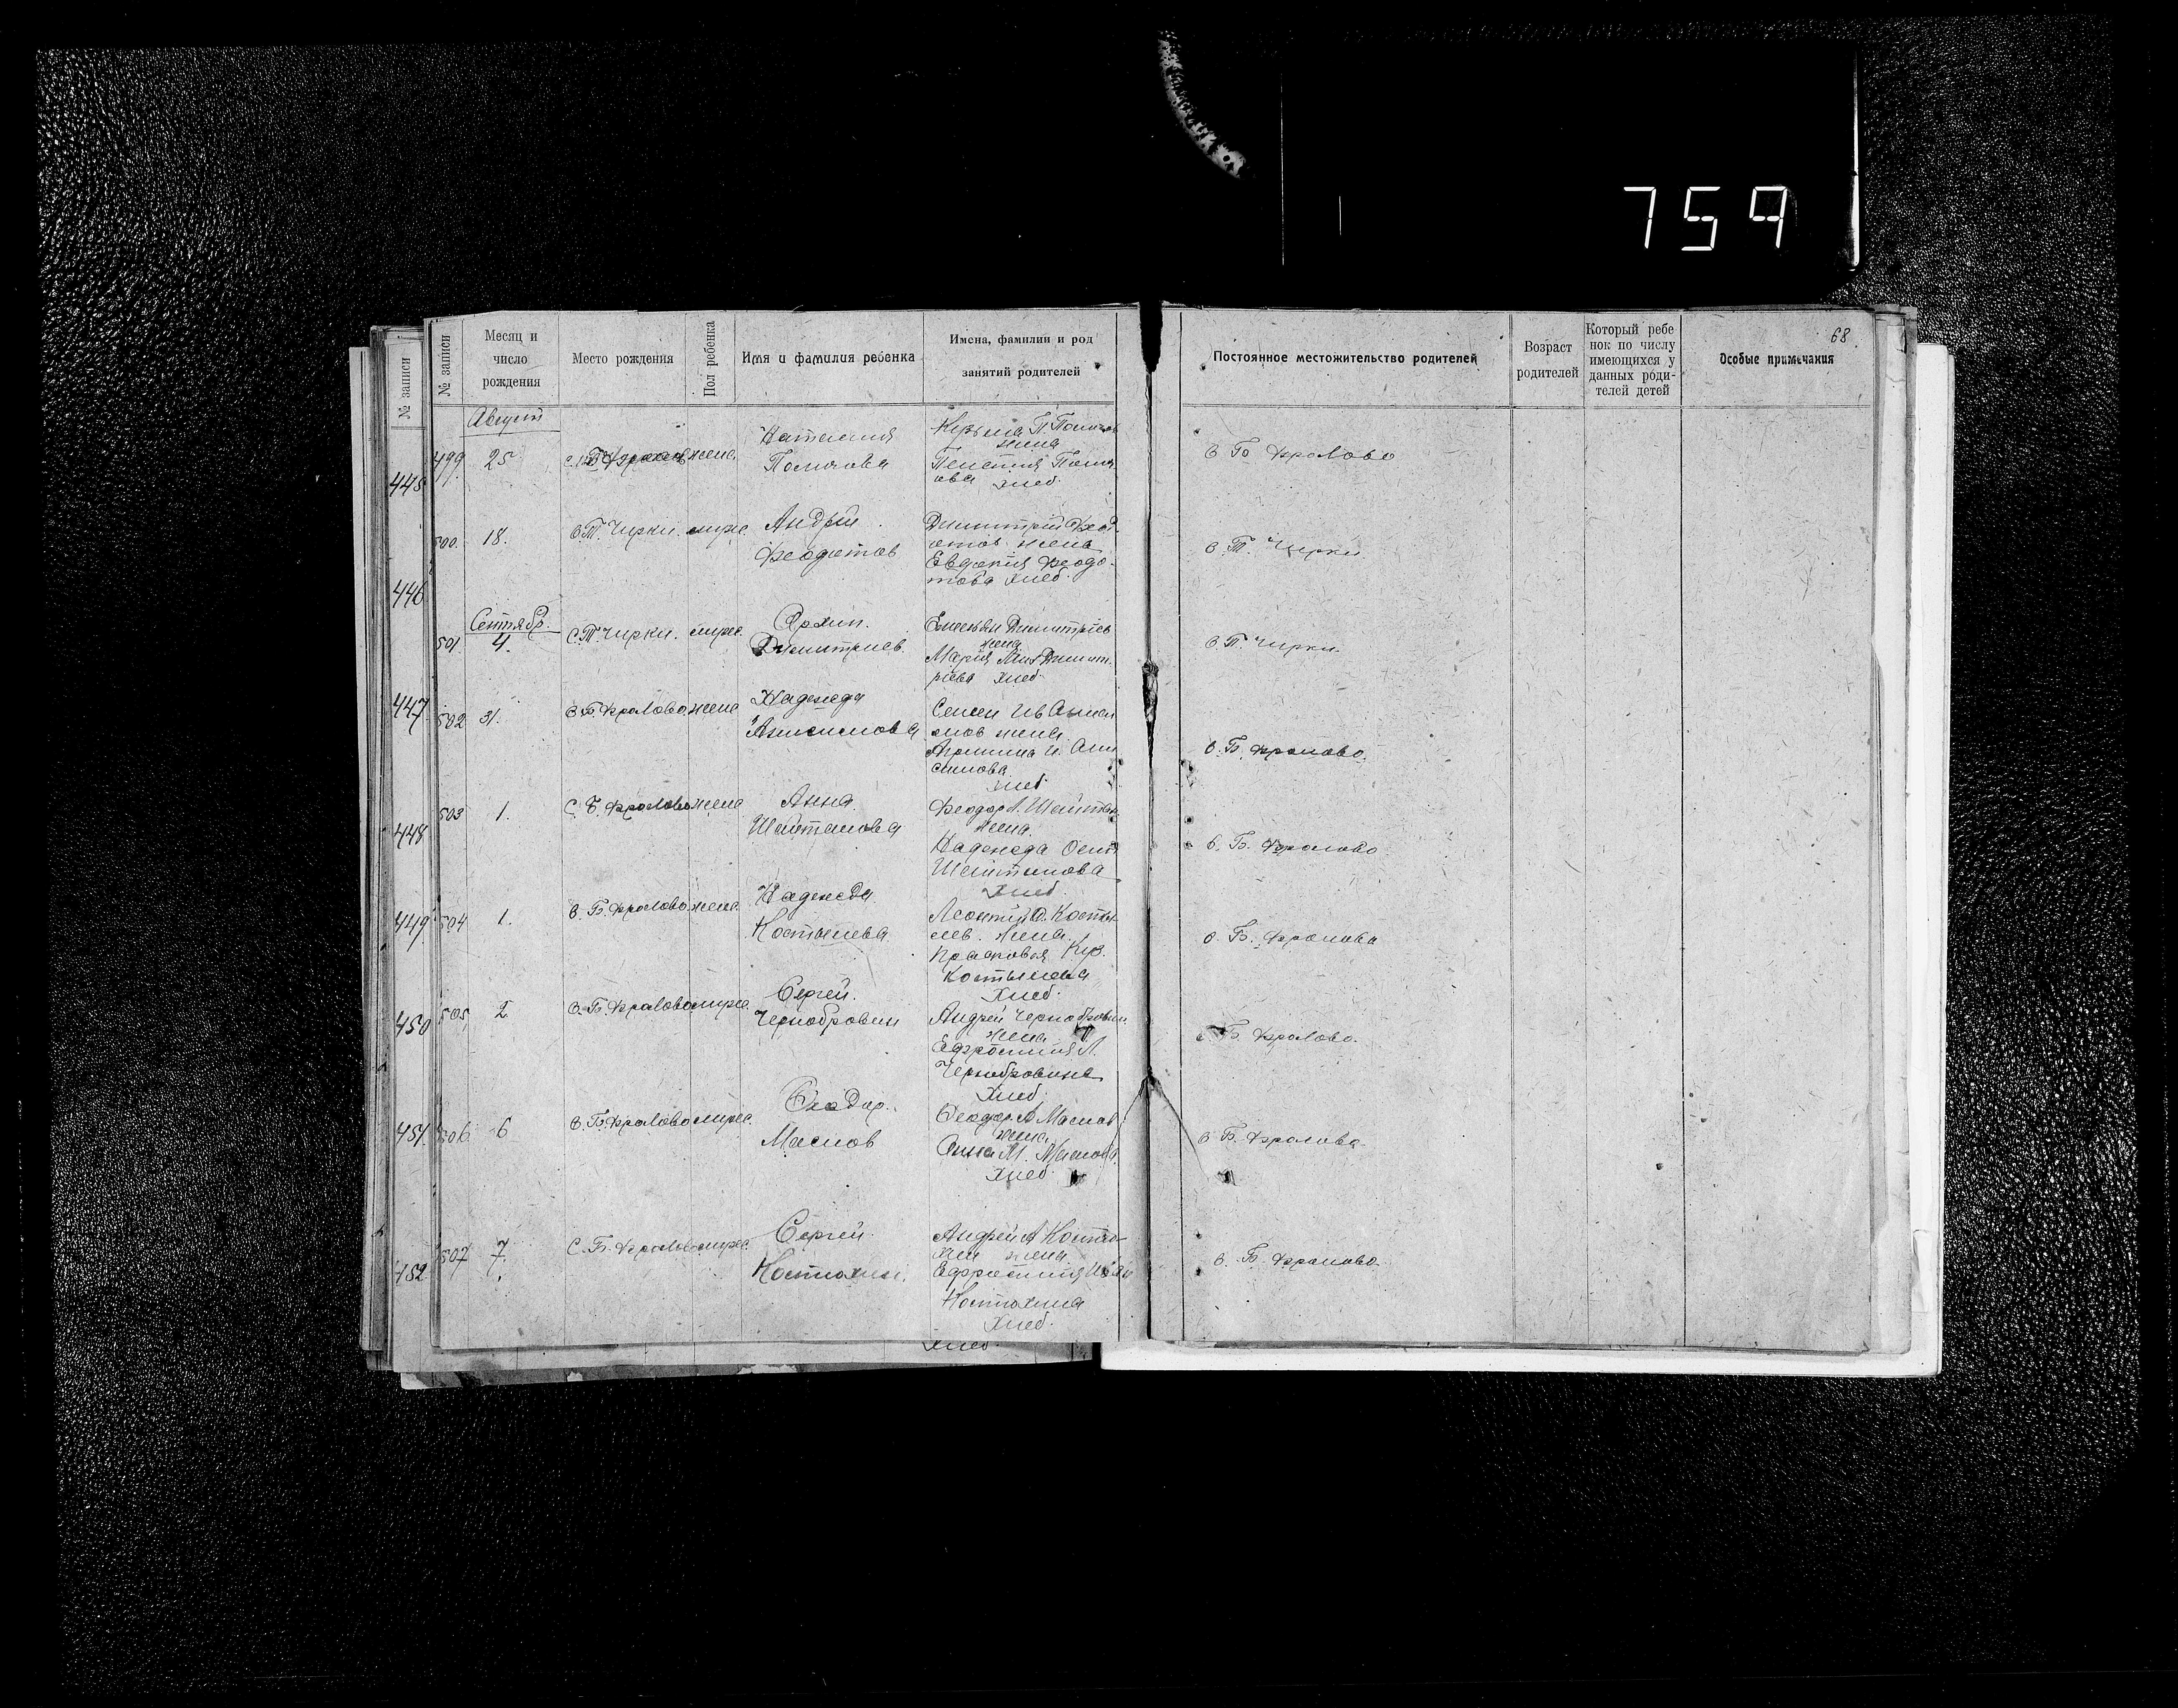 759
68
№ записи
№ записи
Месяц и число рождения
Место рождения
Пол ребенка
Имя и фамилия ребенка
Имена, фамилии и род занятий родителей
Постоянное местожительство родителей
Возраст родителей
Который ребе
нок по числу
имеющихся у
данных роди-
телей детей
Особые примечания
Август
499. 25 жена.
Наталия
жена
хлеб.
с Б Фролово
445
500. 18. с. Т. Чирки. муже.
Андрей
Феодотов
Димитрий Феод
отов жена
Евдокия Феодо-
това хлеб.
с. Т. Чирки
446
Сентябр.
501 4. с. Т. Чирки. муже.
Архип.
Димитриев.
Емельян Димитриев
жена
Мария Димит
риева хлеб.
с Т. Чирки.
447
502 31. с Б. Фролово. жена
Надежда
Анисимова
Семен Ив Аниси
мов жена
И. Ани
симова
хлеб
с. Б. Фролово.
448
503 1. с. Б. Фролово жена
Анна.
Шайтанова
Феодор Шайтан
жена.
Надежда Осип
Шайтанова
хлеб.
с. Б. Фролово
449
504 1. с. Б. Фролово. жена.
Надежда
Костылева
Леонтий Косты
лев. жена.
Прасковья Куз.
Костылева
хлеб.
с. Б. Фролово
450
505 2 с. Б. Фролово муже.
Сергей.
Чернобровин
Андрей Чернобровин
жена
Ефросиния Л.
Чернобровина
хлеб.
с Б. Фролово.
451.
506 6 с. Б. Фролово муже.
Феодор.
Маслов
Феодор А Маслов
жена
Анна М. Маслова.
хлеб.
с Б. Фролово.
452
507 7. с. Б. Фролово муже.
Сергей.
Костюхин.
Андрей А Костю
хин жена
Ефросиния Иван
Костюхина
хлеб.
с. Б. Фролово.
хлеб.